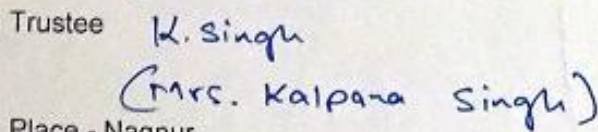 Trustee K. Singh
(Mrs. Kalpana Singh)
Place - Nagpur